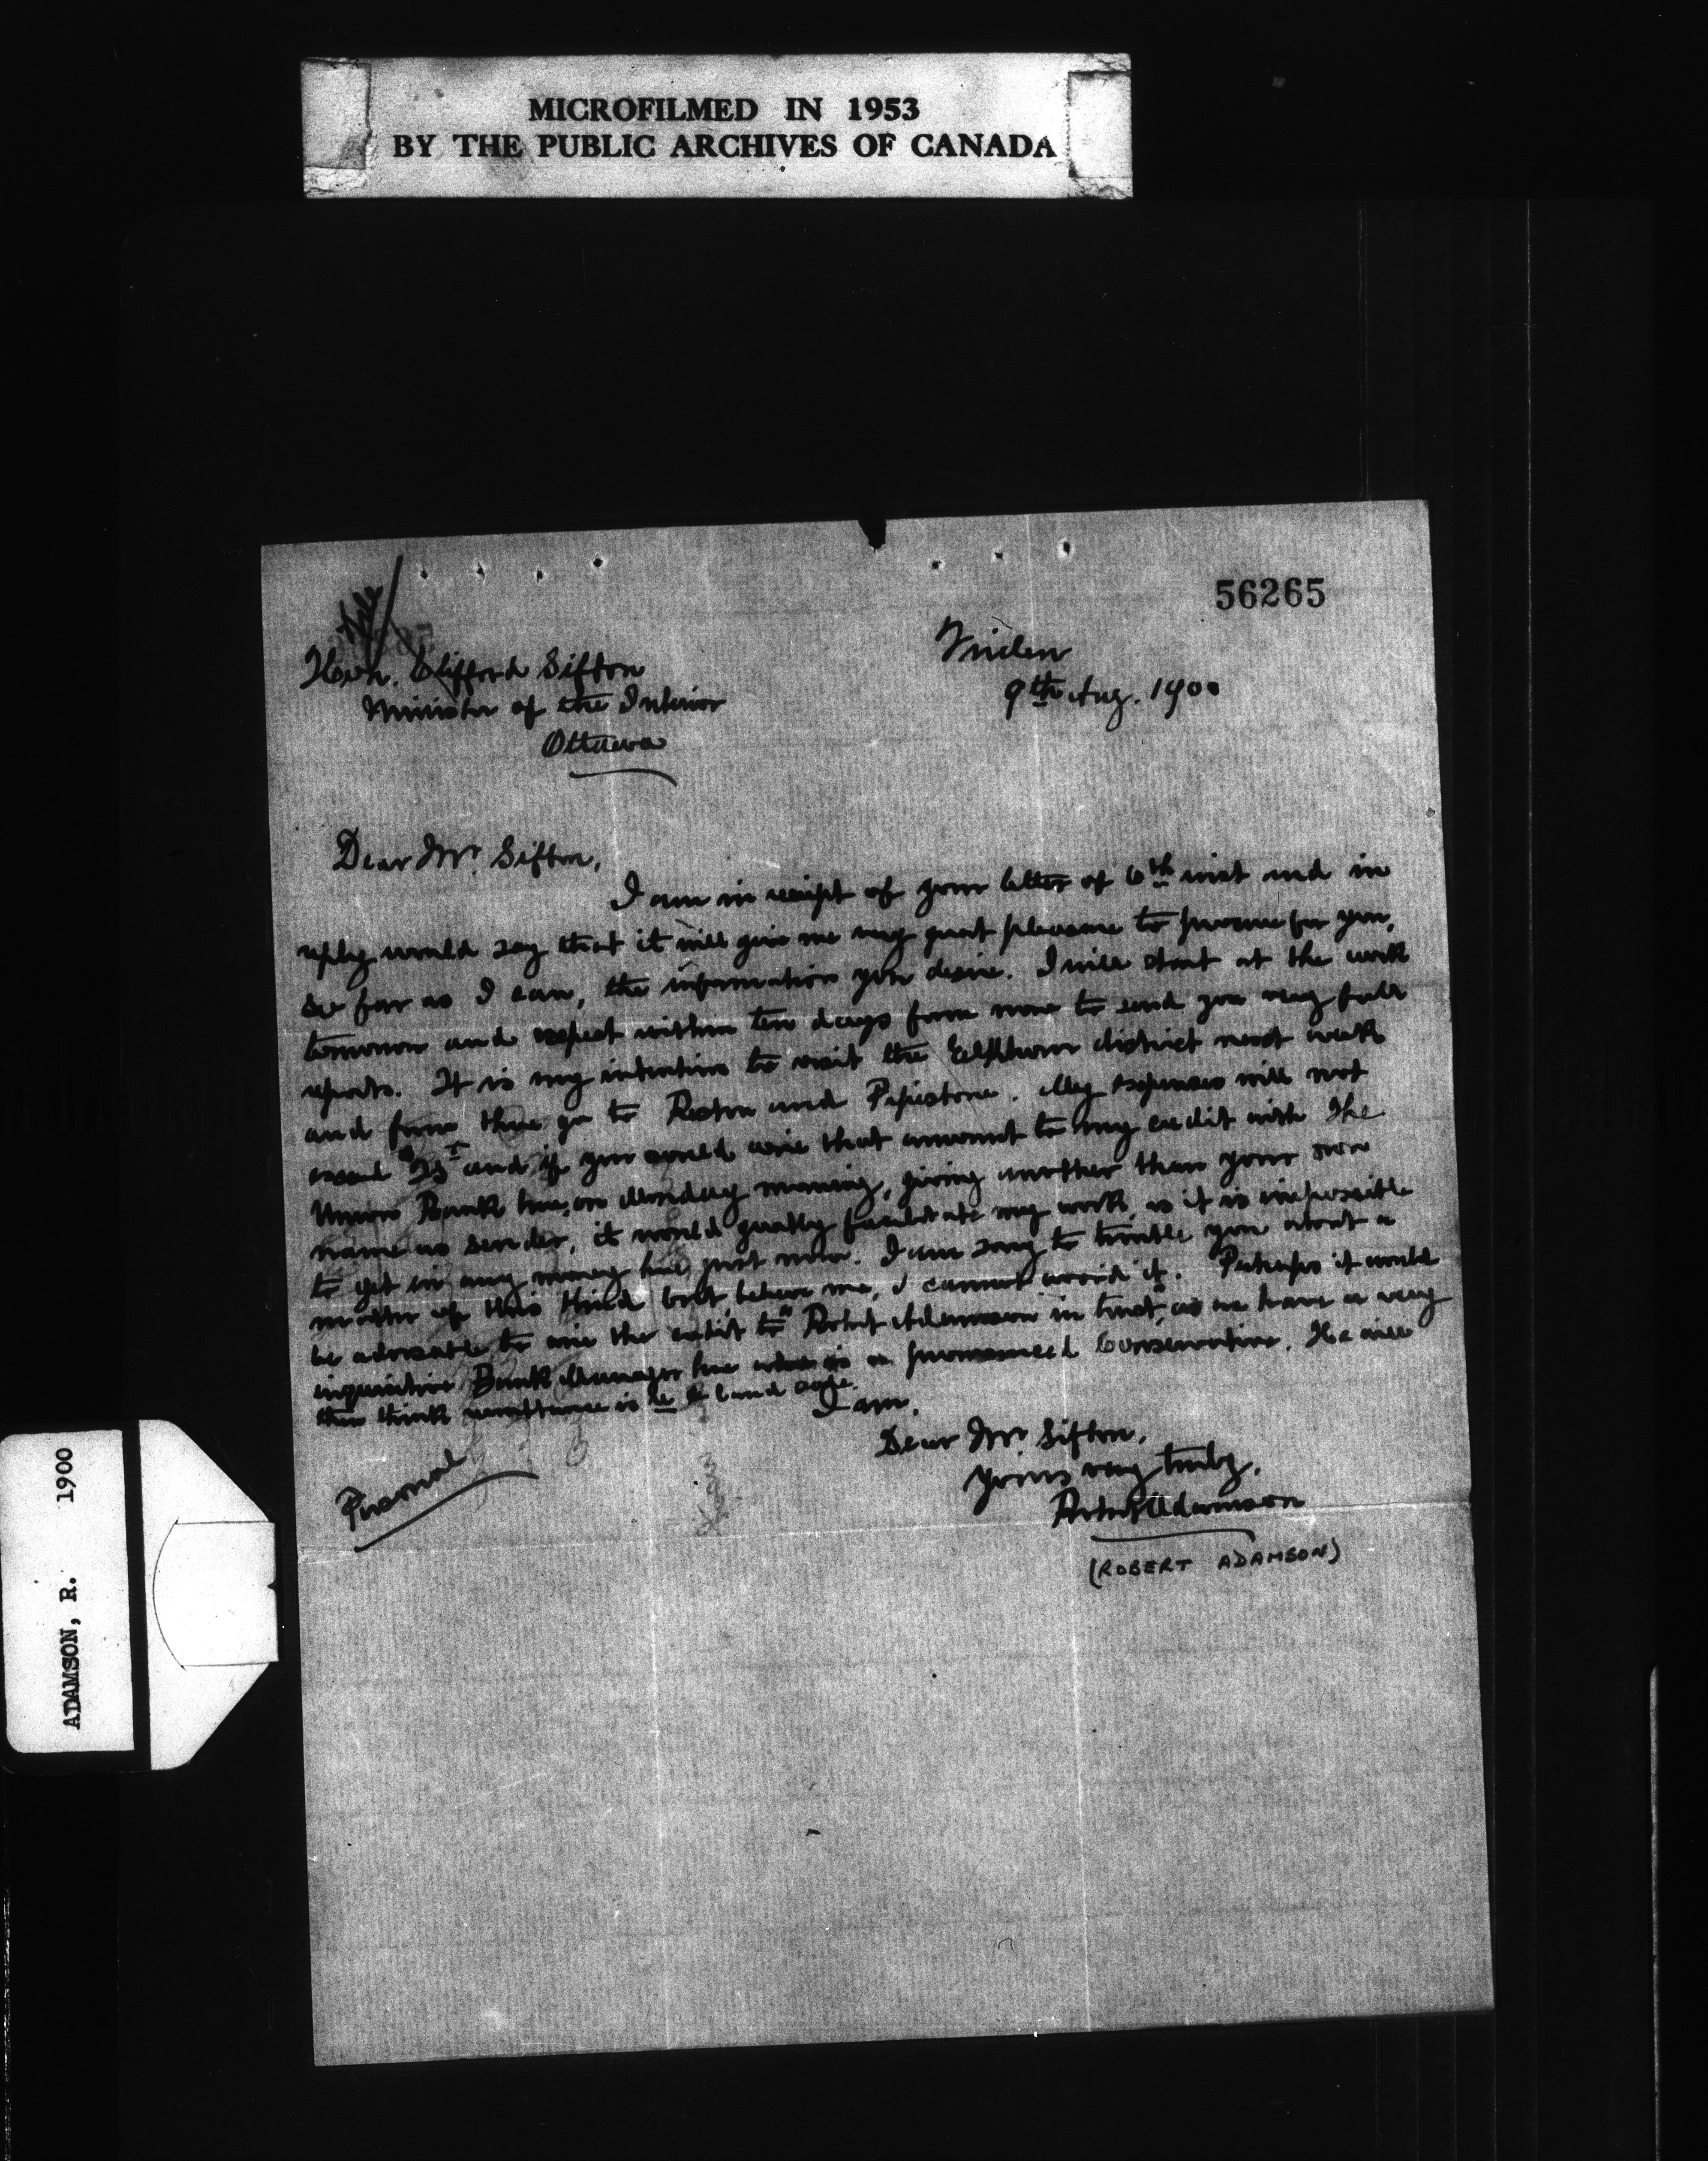 MICROFILMED IN 1953
BY THE PUBLIC ARCHIVES OF CANADA
56265
Virden
9th Aug. 1900
Hon. Clifford Sifton
Minister of the Interior
Ottawa
Dear Mr. Sifton,
I am in receipt of your letter of 6th inst and in
reply would say that it will give me very great pleasure to procure for you,
so far as I can, the information you desire. I will start at the work
tomorrow and expect within ten days from now to send you very full
reports. It is my intention to visit the Elkhorn district next week
and from there go to Reston and Pipestone. My expenses will not
exceed $25 and if you would wire that amount to my credit with the
Union Bank here, on Monday morning, giving another than your own
name as sender, it would greatly facilitate my work, as it is impossible
to get in any money here just now. I am sorry to trouble you about a
matter of this kind but, believe me, I cannot avoid it. Perhaps it would
be advisable to wire the credit to "Robert Adamson in trust", as we have a very
inquisitive Bank Manager here who is a pronounced Conservative. He will
then think remittance is re a land sale.
I am,
Dear Mr. Sifton,
Yours very truly,
Robert Adamson
(ROBERT ADAMSON)
Personal
ADAMSON, R. 1900